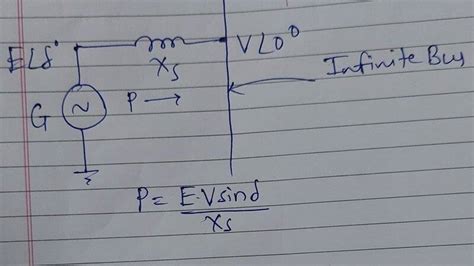 E∠δ°
Xs
V∠0°
Infinite Bus
G
P →
P = E.V sinδ
Xs